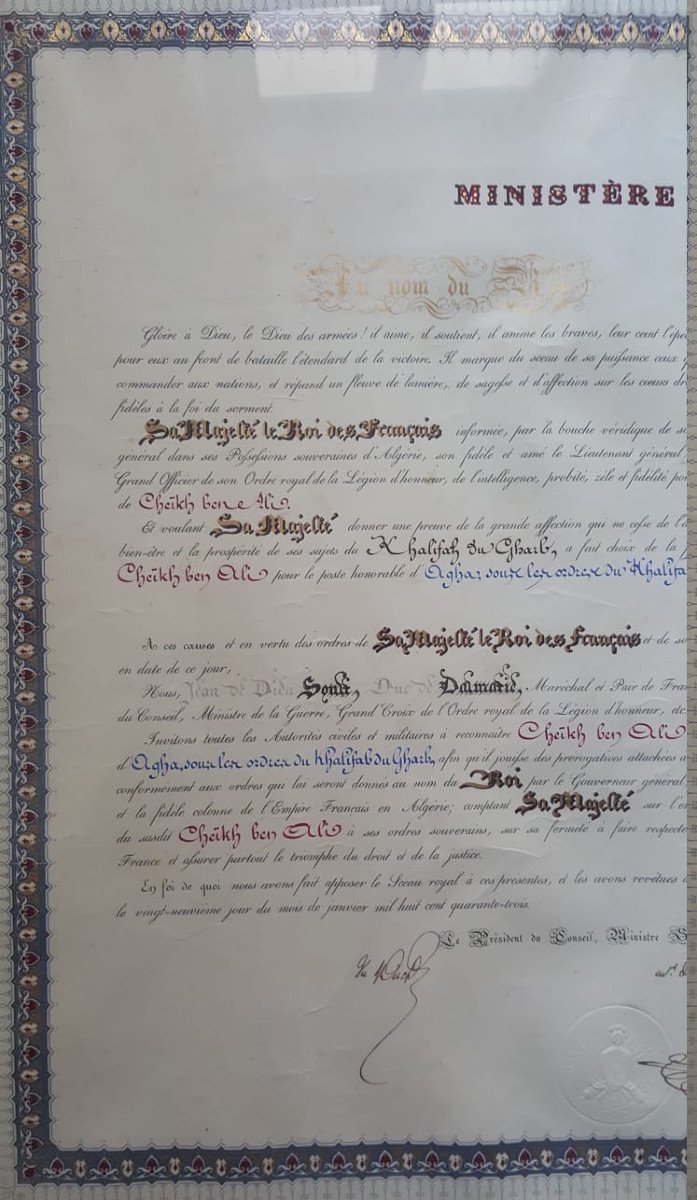 MINISTÈRE
Au nom du
Gloire à Dieu, le Dieu des armées! il aime, il soutient, il anime les braves, leur ceint l'épé
pour eux au front de bataille l'étendard de la victoire. Il marque du sceau de sa puissance ceux
commander aux nations, et répand un fleuve de lumière, de sagesse et d'affection sur les cœurs dr
fidèles à la foi du serment.
Sa Majesté le Roi des Français informée, par la bouche véridique de s
général dans ses Possessions souveraines d'Algérie, son fidèle et amé le Lieutenant général
Grand Officier de son Ordre royal de la Légion d'honneur, de l'intelligence, probité, zèle et fidélité
de Cheïkh ben e Ali.
Et voulant Sa Majesté donner une preuve de la grande affection qui ne cesse de l'
bien-être et la prospérité de ses sujets du Khalifah du Gharb, a fait choix de la
Cheïkh ben Ali pour le poste honorable d'Agha, sous les ordres du Khalifa
A ces causes et en vertu des ordres de Sa Majesté le Roi des Français et de so
en date de ce jour,
Nous, Jean de Dieu Soult, Duc de Dalmatie, Maréchal et Pair de Fran
du Conseil, Ministre de la Guerre, Grand Croix de l'Ordre royal de la Légion d'honneur, etc.
Invitons toutes les Autorités civiles et militaires à reconnaître Cheïkh ben Ali
d'Agha, sous les ordres du Khalifah du Gharb, afin qu'il jouisse des prérogatives attachées à
conformément aux ordres qui lui seront donnés au nom du Roi par le Gouverneur général
et la fidèle colonne de l'Empire Français en Algérie; comptant Sa Majesté sur l'
du susdit Cheïkh ben Ali à ses ordres souverains, sur sa fermeté à faire respecte
France et assurer partout le triomphe du droit et de la justice.
En foi de quoi nous avons fait apposer le Sceau royal à ces présentes, et les avons revêtues
le vingt-neuvième jour du mois de janvier mil huit cent quarante-trois.
Le Président du Conseil, Ministre